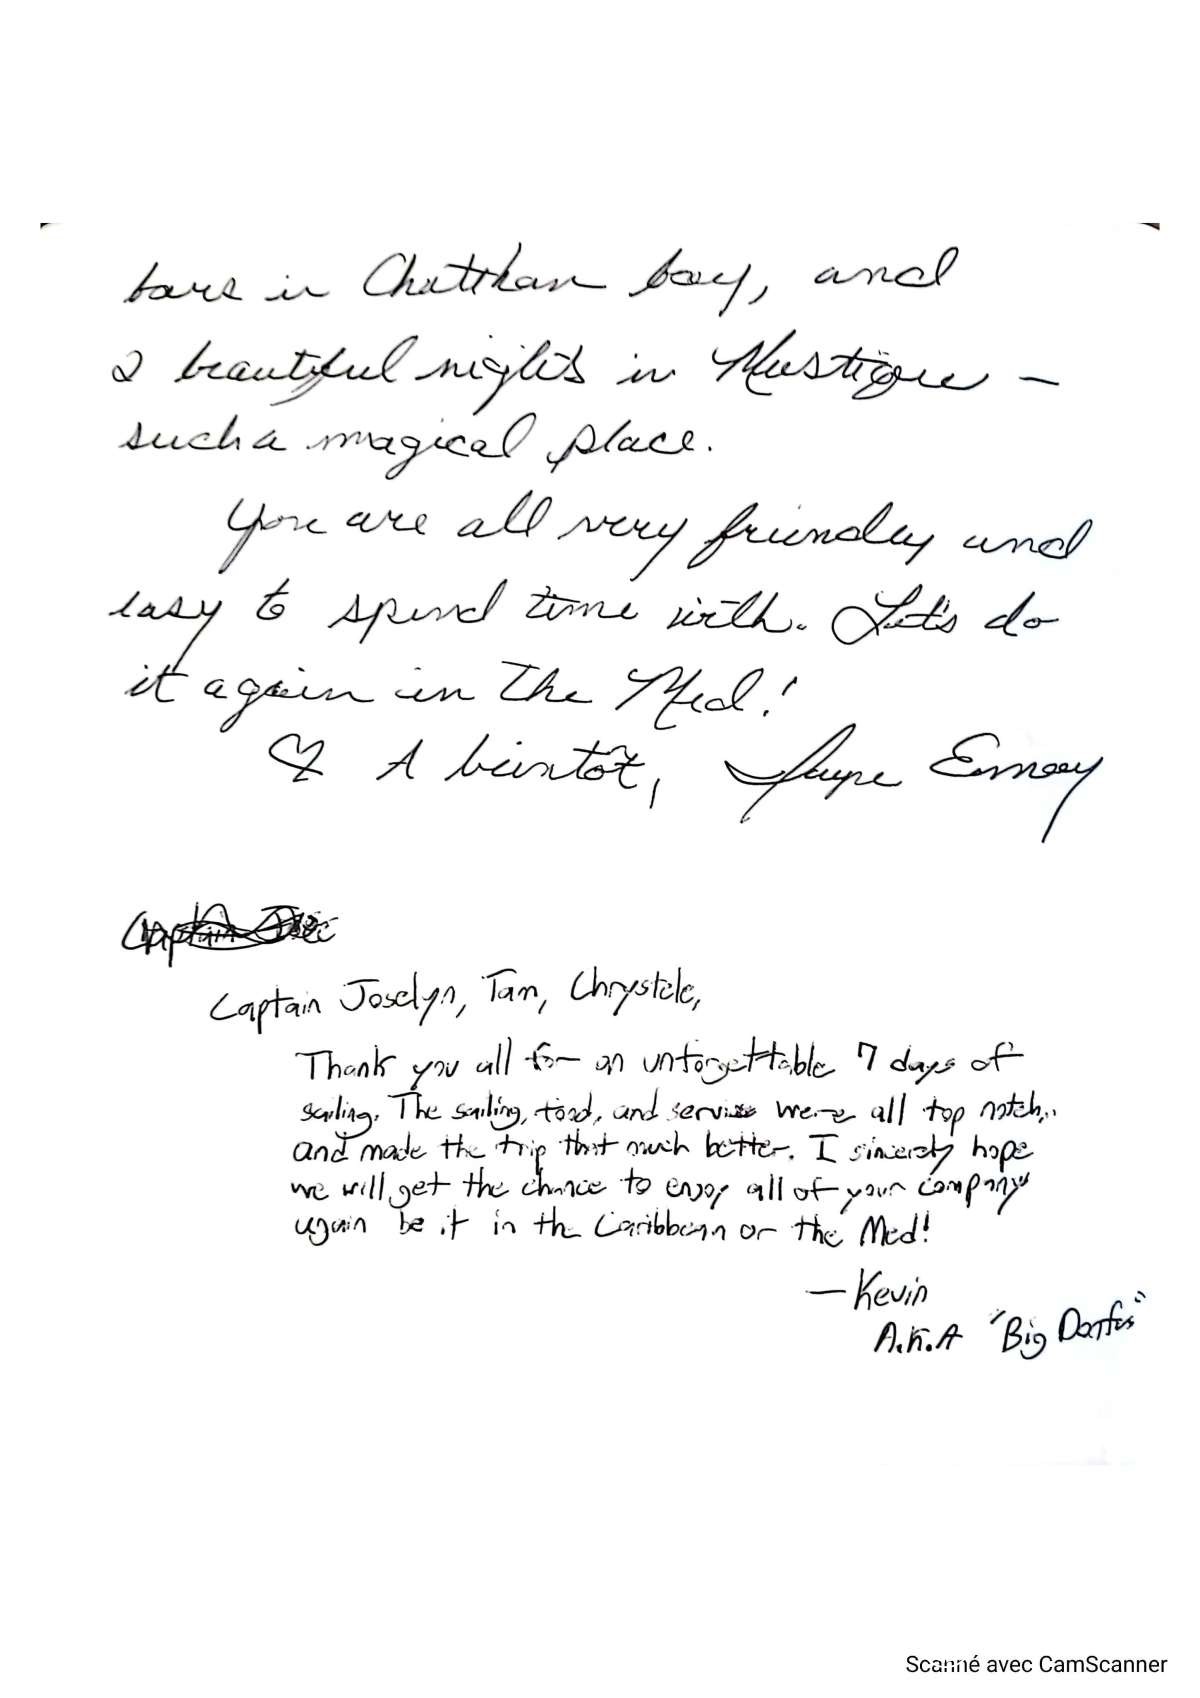 bars in Chatthan bay, and
2 beautiful nights in Mustique –
such a magical place.
You are all very friendly and
easy to spend time with. Let's do
it again in the Med!
♡ A bientôt, Jayne Emory
Captain
Captain Joselyn, Tam, Chrystele,
Thank you all for an unforgettable 7 days of
sailing. The sailing, food, and service were all top notch,
and made the trip that much better. I sincerely hope
we will get the chance to enjoy all of your companys
again be it in the Caribbean or the Med!
— Kevin
A.K.A "Big Dorfus"
Scanné avec CamScanner